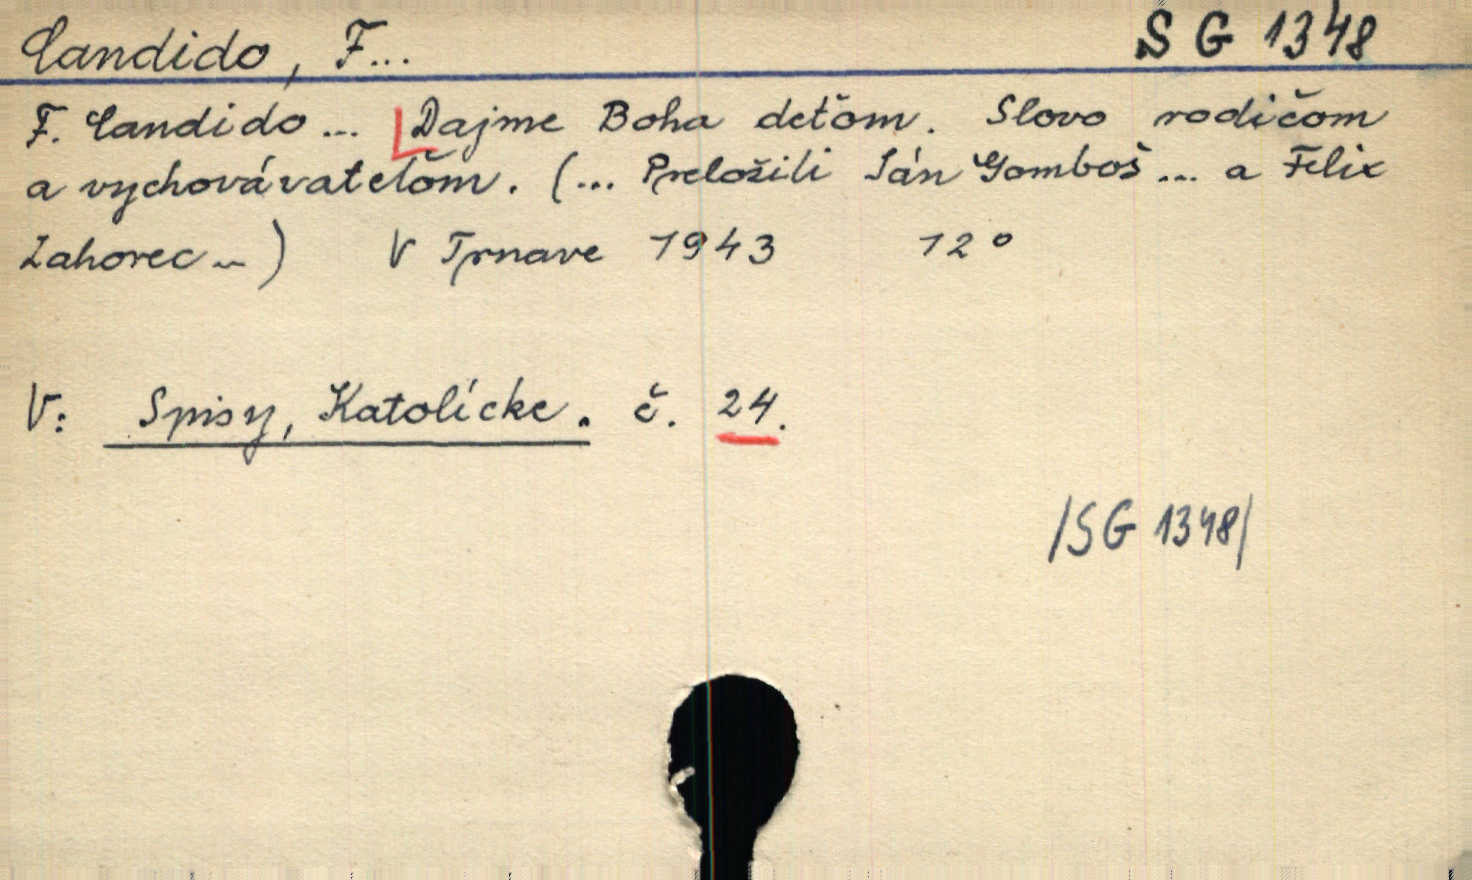 Candido, F... SG 1348
F. Candido ... Dajme Boha deťom. Slovo rodičom
a vychovávateľom. (... Preložili Ján Gomboš ... a Felix
Zahorec ...) V Trnave 1943 12°
V: Spisy, Katolícke. č. 24.
/SG 1348/